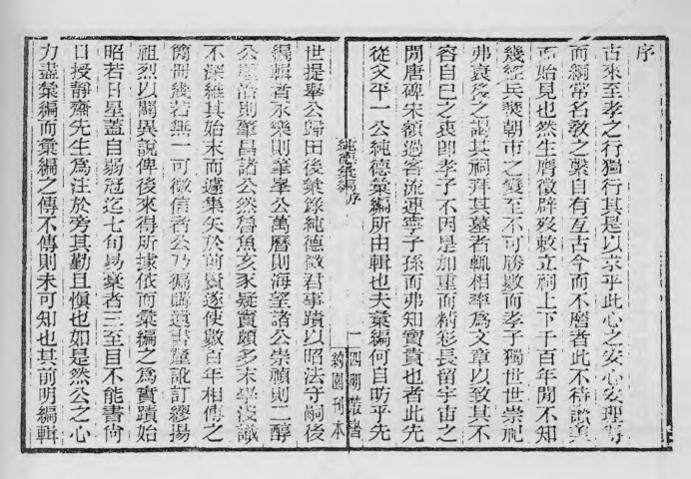 序
古來至孝之行獨行其是以求乎此心之安心安理得
而綱常名教之繫自有亙古今而不磨者此不待讚美
而始見也然生膺徵辟歿敕立祠上下千百年閒不知
幾經兵燹朝市之變至不可勝數而孝子獨世世崇祀
弗衰後之謁其祠拜其墓者輒相率爲文章以致其不
容自已之衷卽孝子不因是加重而精彩長留宇宙之
閒唐碑宋額過客流連寧子孫而弗知寶貴也者此先
從父平一公純德彙編所由輯也夫彙編何自昉乎先
純德彙編序
一
四明叢書
約園刊本
世提舉公歸田後彙錄純德徵君事蹟以昭法守嗣後
編輯者永樂則肇舉公萬曆則海望諸公崇禎則二醇
公順治則肇昌諸公然魯魚亥豕疑竇頗多末學淺識
不深維其始末而遽集矢於前賢遂使數百年相傳之
簡冊幾若無一可徵信者公乃徧購遺書釐訛訂繆揚
祖烈以闢異說俾後來得所據依而彙編之爲實蹟始
昭若日星蓋自弱冠迄七旬易彙者三至目不能書尙
口授靜齋先生爲注於旁其勤且愼也如是然公之心
力盡彙編而彙編之傳不傳則未可知也其前明編輯